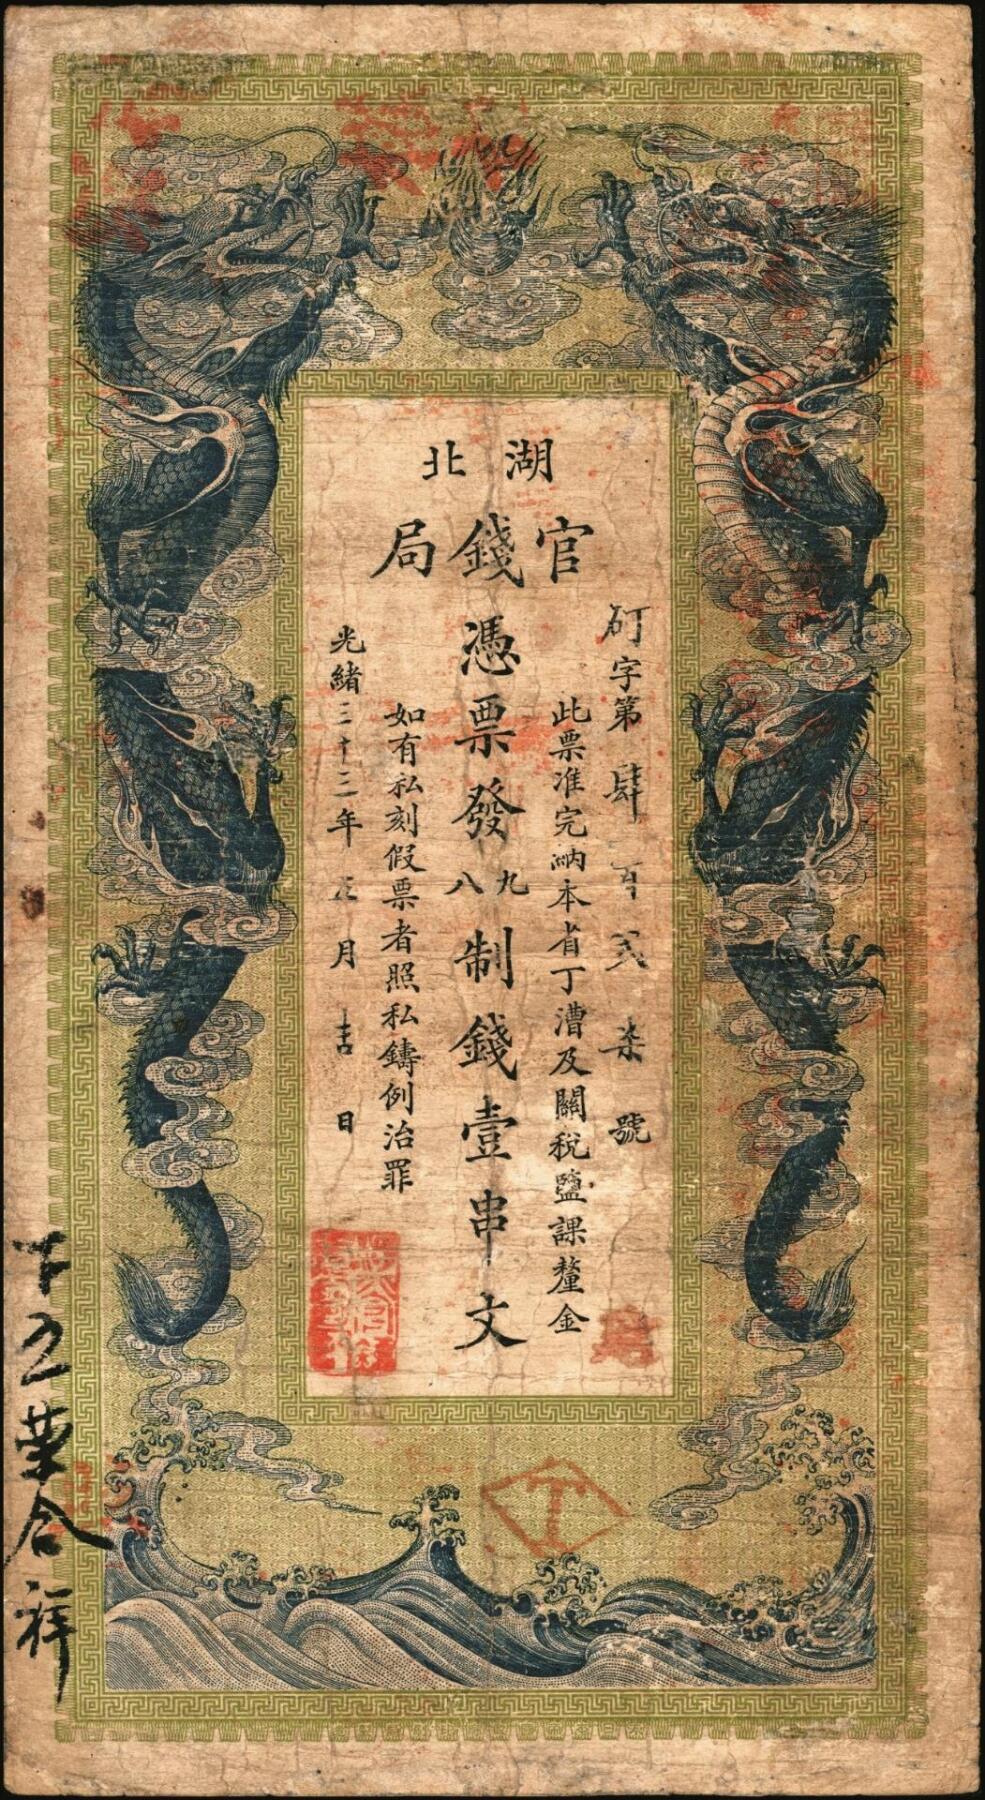 湖北
官錢局
矴字第肆百弍柒號
此票准完納本省丁漕及關稅鹽課釐金
憑票發九八制錢壹串文
如有私刻假票者照私鑄例治罪
光緒三十三年正月吉日